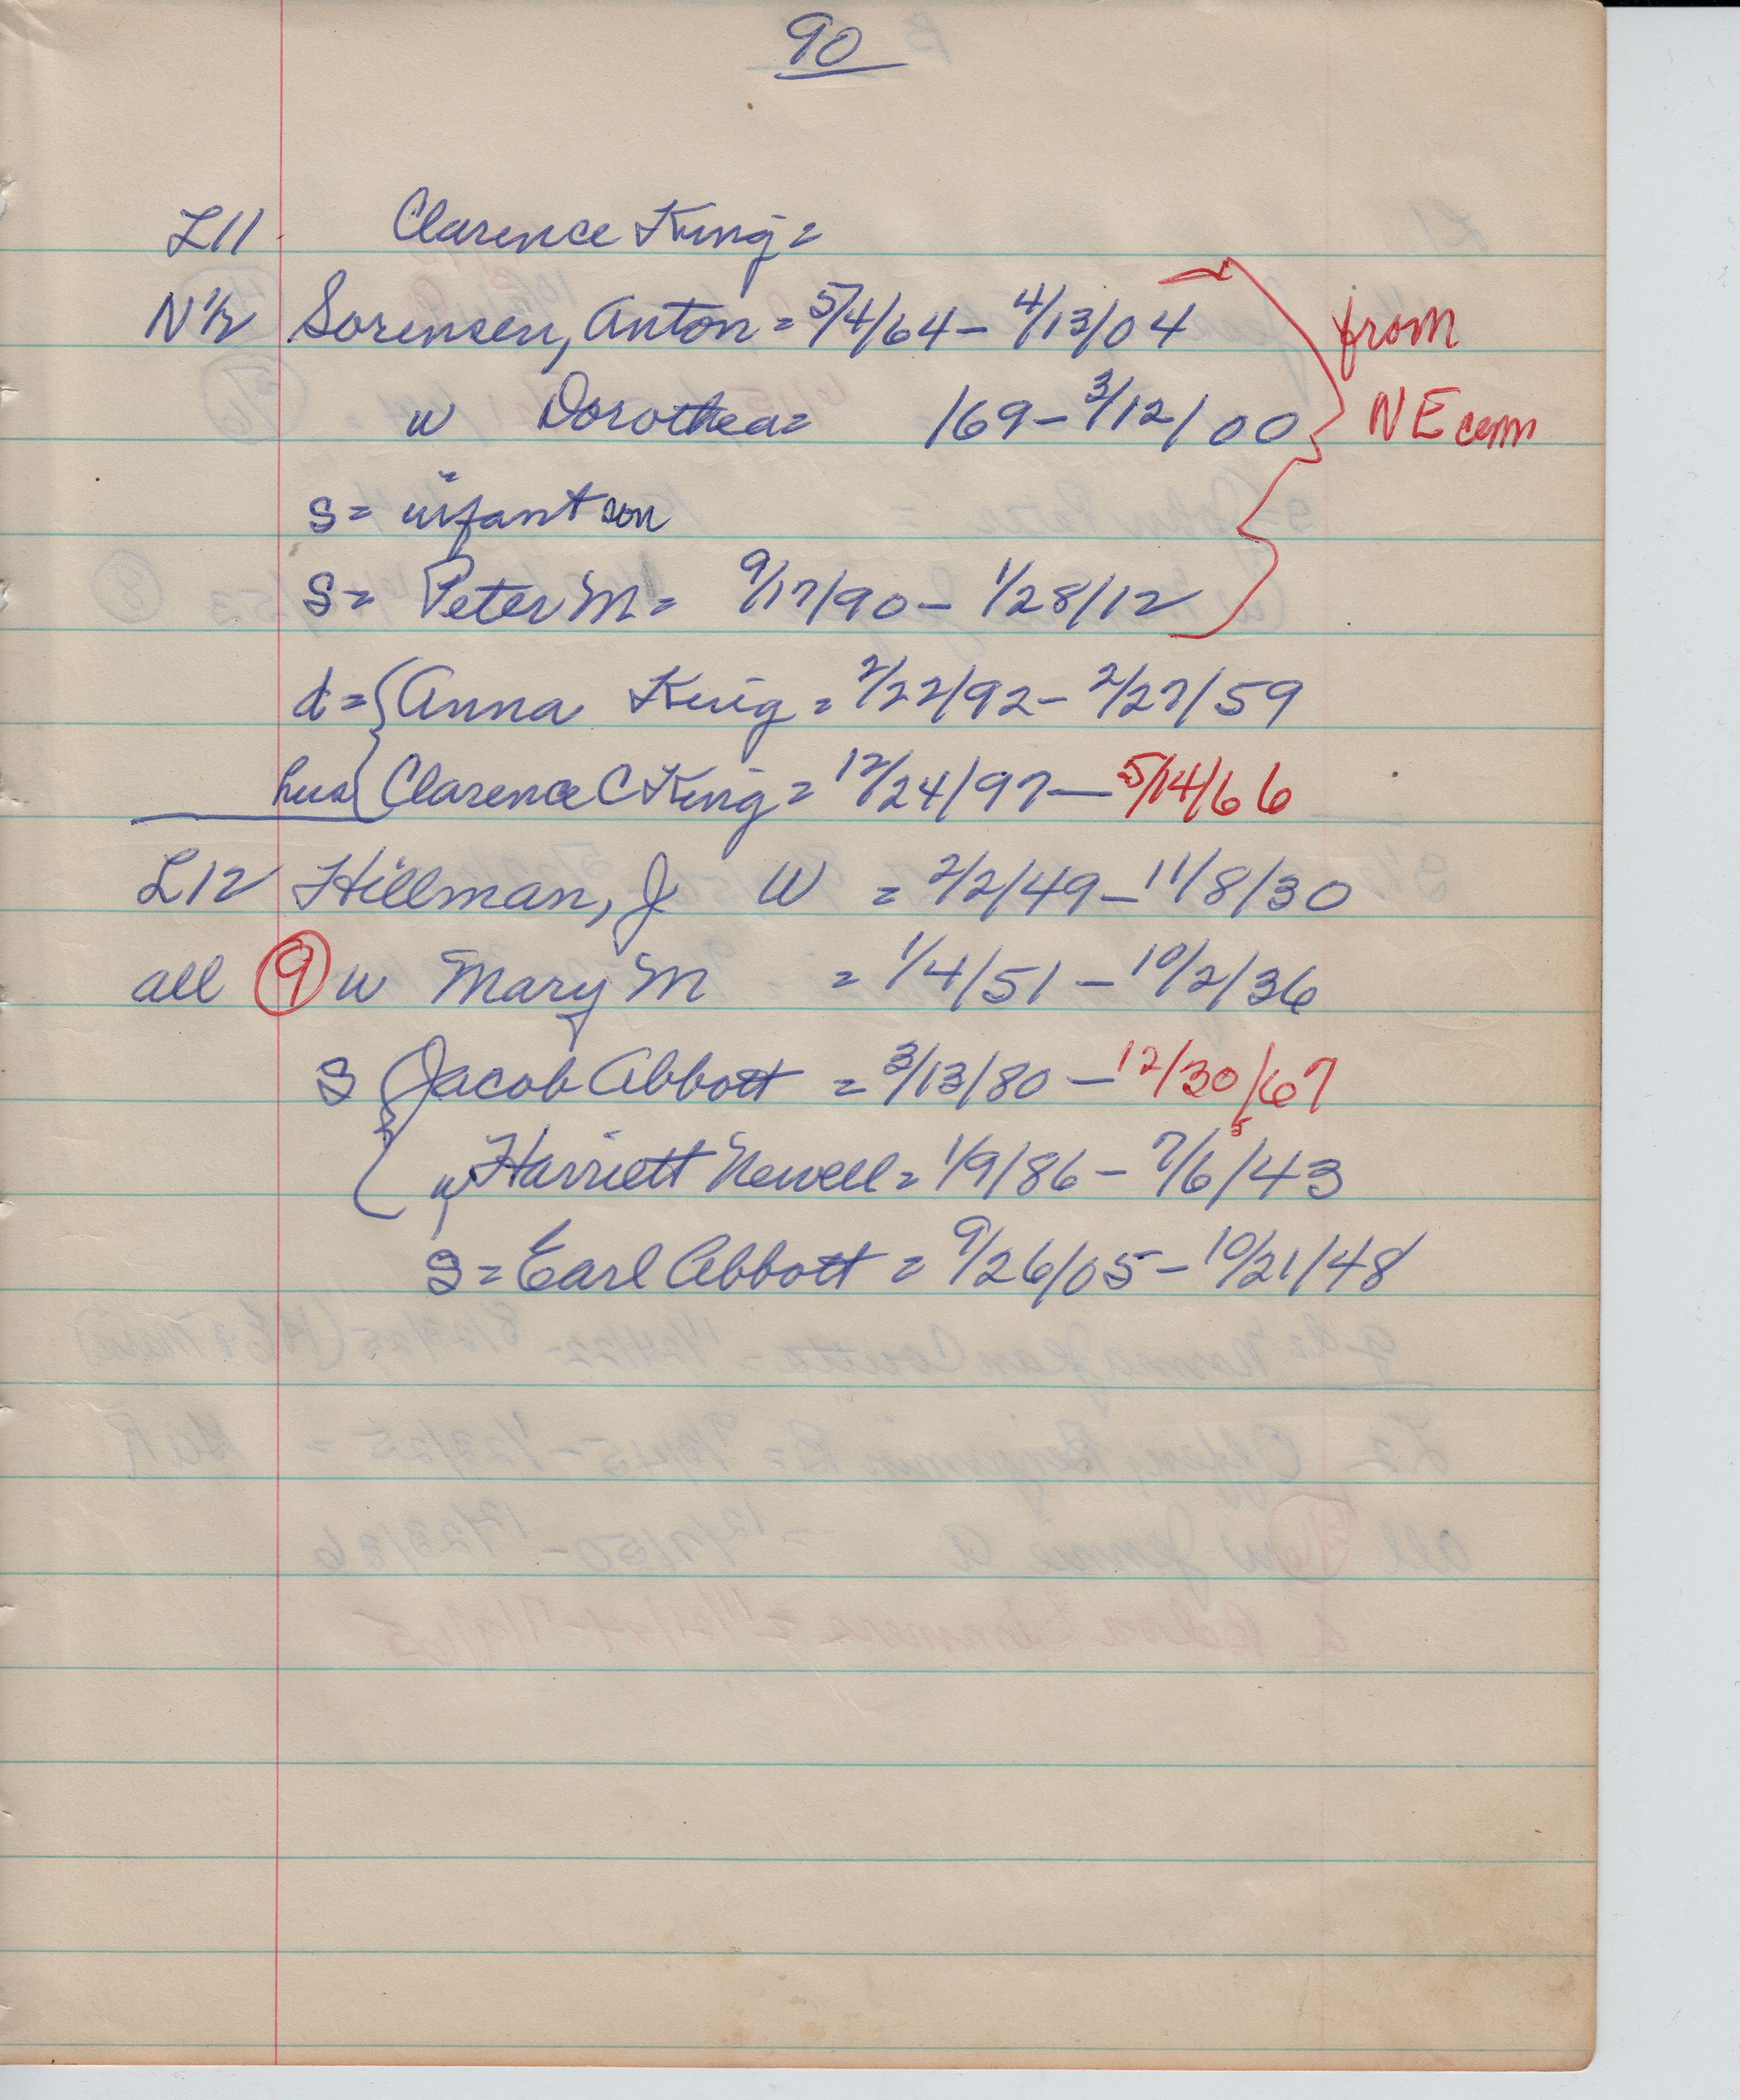 90
L11 Clarence King =
N 1/2 Sorensen, Anton = 5/4/64 - 4/13/04 from
w Dorothea = /69 - 3/12/00 NE cem
s = infant son
s = Peter M = 9/17/90 - 1/28/12
d = { Anna King = 2/22/92 - 2/27/59
hus { Clarence C King = 12/24/97 - 5/14/66
L12 Hillman, J W = 2/2/49 - 11/8/30
all 9 w Mary M = 1/4/51 - 10/2/36
s { Jacob Abbott = 3/13/80 - 12/30/67
w Harriett Newell = 1/9/86 - 7/6/43
s = Earl Abbott = 9/26/05 - 10/21/48